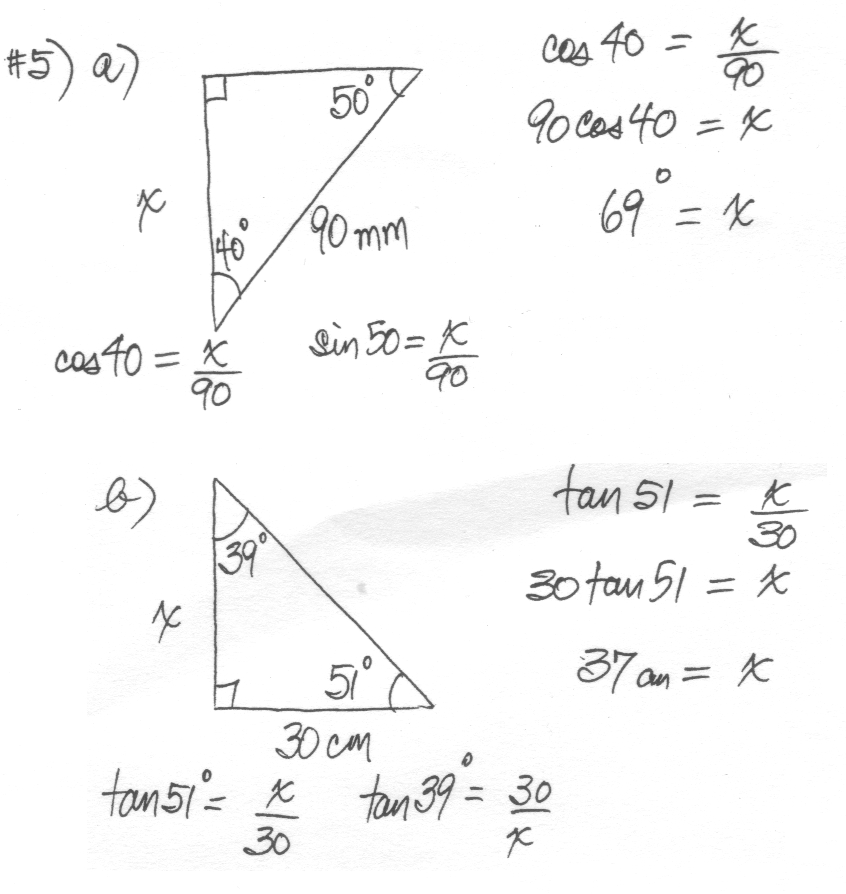 #5) a)
50°
x
40°
90 mm
cos 40 = x/90
sin 50 = x/90
cos 40 = x/90
90 cos 40 = x
69° = x
b)
39°
x
51°
30 cm
tan 51° = x/30
tan 39° = 30/x
tan 51 = x/30
30 tan 51 = x
37 cm = x